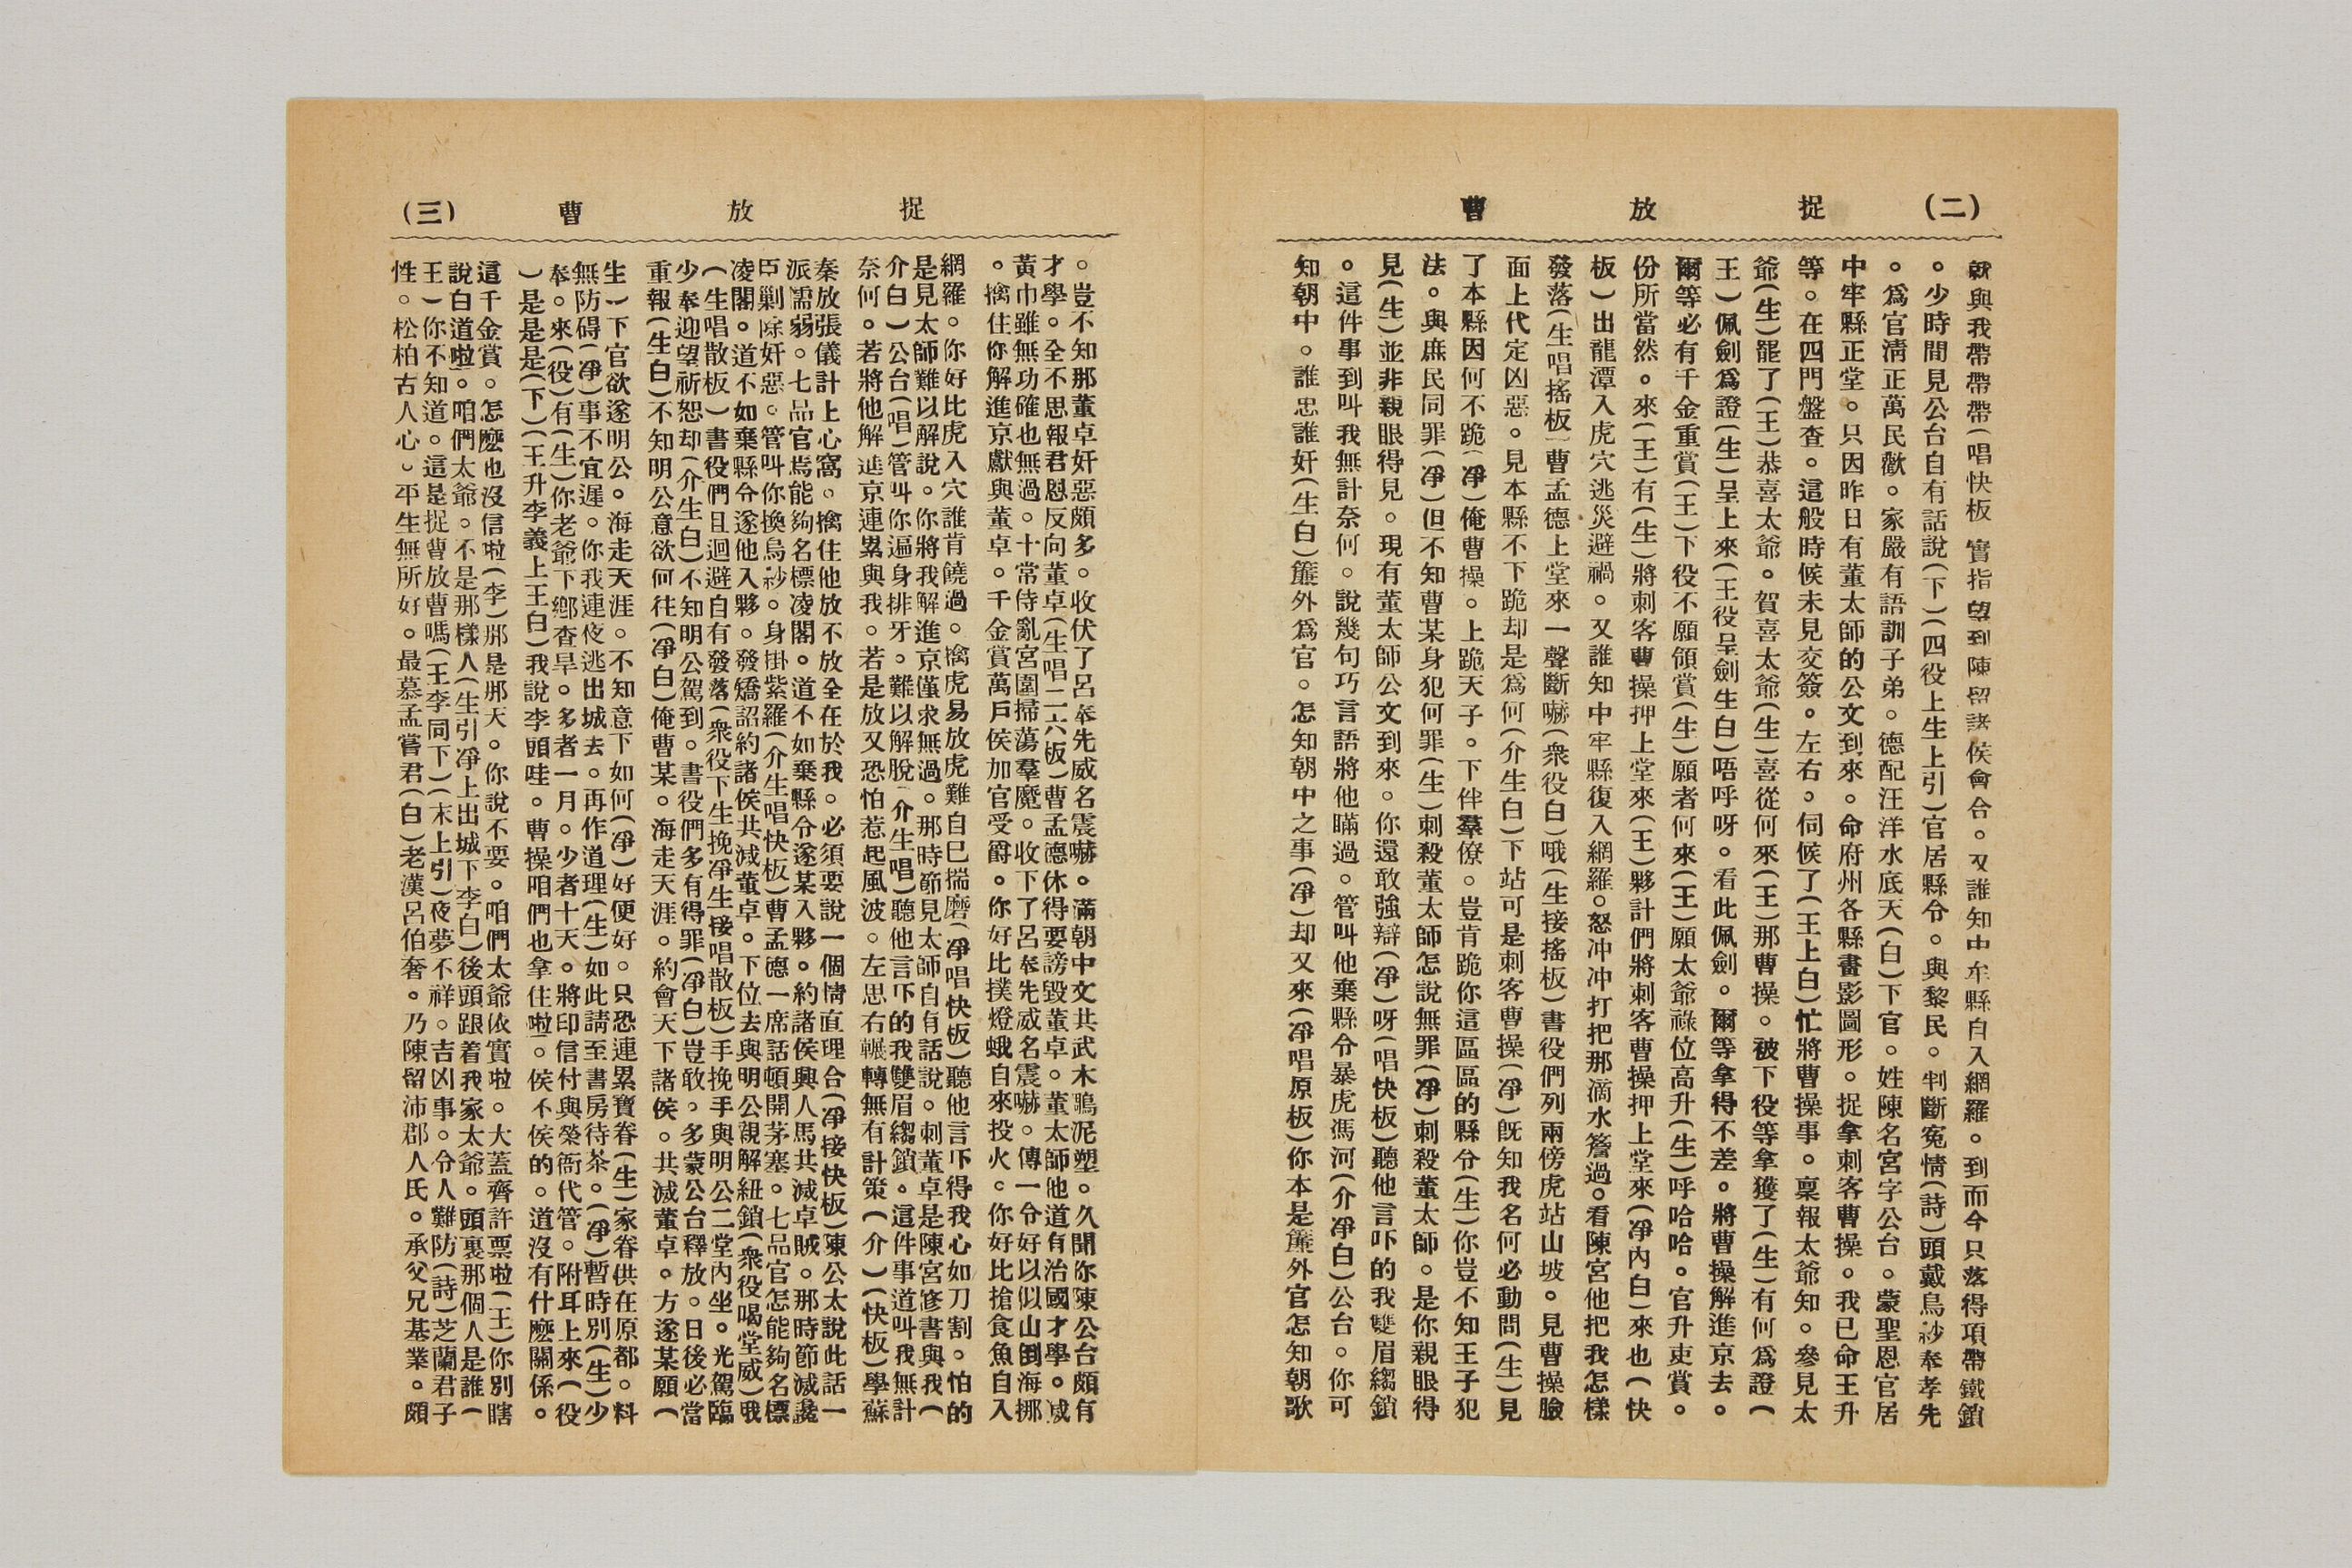 (二) 捉放曹
就與我帶帶帶(唱快板 實指望到陳留諸侯會合。又誰知中牟縣自入網羅。到而今只落得項帶鐵鎖
。少時間見公台自有話說(下)(四役上生上引)官居縣令。與黎民。判斷寃情(詩)頭戴烏紗奉孝先
。爲官清正萬民歡。家嚴有語訓子弟。德配汪洋水底天(白)下官。姓陳名宮字公台。蒙聖恩官居
中牢縣正堂。只因昨日有董太師的公文到來。命府州各縣畫影圖形。捉拿刺客曹操。我已命王升
等。在四門盤查。這般時候未見交簽。左右。伺候了(王上白)忙將曹操事。稟報太爺知。參見太
爺(生)罷了(王)恭喜太爺。賀喜太爺(生)喜從何來(王)那曹操。被下役等拿獲了(生)有何爲證(
王)佩劍爲證(生)呈上來(王役呈劍生白)唔呼呀。看此佩劍。爾等拿得不差。將曹操解進京去。
爾等必有千金重賞(王)下役不願領賞(生)願者何來(王)願太爺祿位高升(生)呼哈哈。官升吏賞。
份所當然。來(王)有(生)將刺客曹操押上堂來(王)夥計們將刺客曹操押上堂來(凈內白)來也(快
板)出龍潭入虎穴逃災避禍。又誰知中牢縣復入網羅。怒冲冲打把那滴水簷過。看陳宮他把我怎樣
發落(生唱搖板)曹孟德上堂來一聲斷嚇(衆役白)哦(生接搖板)書役們列兩傍虎站山坡。見曹操臉
面上代定凶惡。見本縣不下跪却是爲何(介生白)下站可是刺客曹操(凈)既知我名何必動問(生)見
了本縣因何不跪(凈)俺曹操。上跪天子。下伴羣僚。豈肯跪你這區區的縣令(生)你豈不知王子犯
法。與庶民同罪(凈)但不知曹某身犯何罪(生)刺殺董太師怎說無罪(凈)刺殺董太師。是你親眼得
見(生)並非親眼得見。現有董太師公文到來。你還敢強辯(凈)呀(唱快板)聽他言吓的我雙眉縐鎖
。這件事到叫我無計奈何。說幾句巧言語將他瞞過。管叫他棄縣令暴虎馮河(介凈白)公台。你可
知朝中。誰忠誰奸(生白)簾外爲官。怎知朝中之事(凈)却又來(凈唱原板)你本是簾外官怎知朝歌
捉放曹 (三)
。豈不知那董卓奸惡頗多。收伏了呂奉先威名震嚇。滿朝中文共武木鵰泥塑。久聞你陳公台頗有
才學。全不思報君恩反向董卓(生唱二六板)曹孟德休得要謗毀董卓。董太師他道有治國才學。威
黃巾雖無功確也無過。十常侍亂宮圍掃蕩羣魔。收下了呂奉先威名震嚇。傳一令好以似山倒海挪
。擒住你解進京獻與董卓。千金賞萬戶侯加官受爵。你好比撲燈蛾自來投火。你好比搶食魚自入
網羅。你好比虎入穴誰肯饒過。擒虎易放虎難自已揣磨(凈唱快板)聽他言吓得我心如刀割。怕的
是見太師難以解說。你將我解進京僅求無過。那時節見太師自有話說。刺董卓是陳宮修書與我(
介白)公台(唱)管叫你逼身排牙。難以解脫(介生唱)聽他言吓的我雙眉縐鎖。這件事道叫我無計
奈何。若將他解進京連累與我。若是放又恐怕惹起風波。左思右輾轉無有計策(介)(快板)學蘇
秦放張儀計上心窩。擒住他放不放全在於我。必須要說一個情直理合(凈接快板)陳公太說此話一
派濡弱。七品官焉能夠名標凌閣。道不如棄縣令遂某入夥。約諸侯興人馬共滅卓賊。那時節滅讒
臣剿除奸惡。管叫你換烏紗。身掛紫羅(介生唱快板)曹孟德一席話頓開茅塞。七品官怎能夠名標
凌閣。道不如棄縣令遂他入夥。發矯詔約諸侯共滅董卓。下位去與明公親解紐鎖(衆役喝堂威)哦
(生唱散板)書役們且迴避自有發落(衆役下生挽凈生接唱散板)手挽手與明公二堂內坐。光駕臨
少奉迎望祈恕却(介生白)不知明公駕到。書役們多有得罪(凈白)豈敢。多蒙公台釋放。日後必當
重報(生白)不知明公意欲何往(凈白)俺曹某。海走天涯。約會天下諸侯。共滅董卓。方遂某願(
生)下官欲遂明公。海走天涯。不知意下如何(凈)好便好。只恐連累寶眷(生)家眷供在原都。料
無防碍(凈)事不宜遲。你我連夜逃出城去。再作道理(生)如此請至書房待茶。(凈)暫時別(生)少
奉。來(役)有(生)你老爺下鄉查旱。多者一月。少者十天。將印信付與榮衙代管。附耳上來(役
)是是是(下)(王升李義上王白)我說李頭哇。曹操咱們也拿住啦。侯不侯的。道沒有什麽關係。
這千金賞。怎麽也沒信啦(李)那是那天。你說不要。咱們太爺依實啦。大蓋齊許票啦(王)你別瞎
說白道啦。咱們太爺。不是那樣人(生引凈上出城下李白)後頭跟着我家太爺。頭裏那個人是誰(
王)你不知道。這是捉曹放曹嗎(王李同下)(末上引)夜夢不祥。吉凶事。令人難防(詩)芝蘭君子
性。松柏古人心。平生無所好。最慕孟嘗君(白)老漢呂伯奢。乃陳留沛郡人氏。承父兄基業。頗